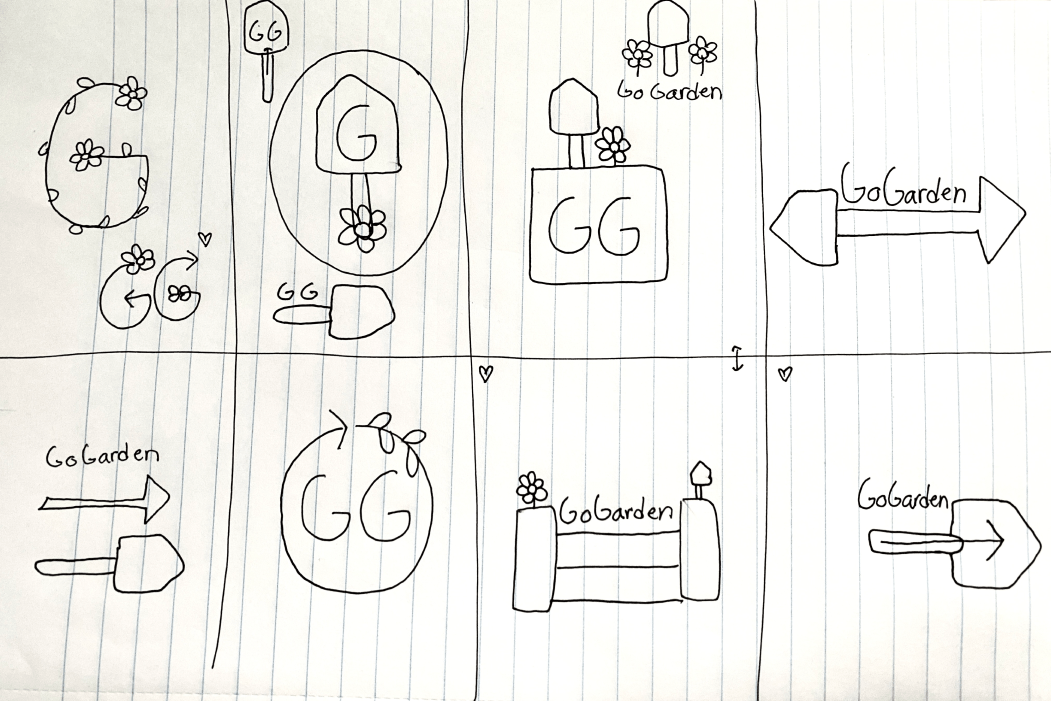 G
G G
GG
G
G G
GG
Go Garden
GoGarden
GoGarden
GG
GoGarden
GoGarden